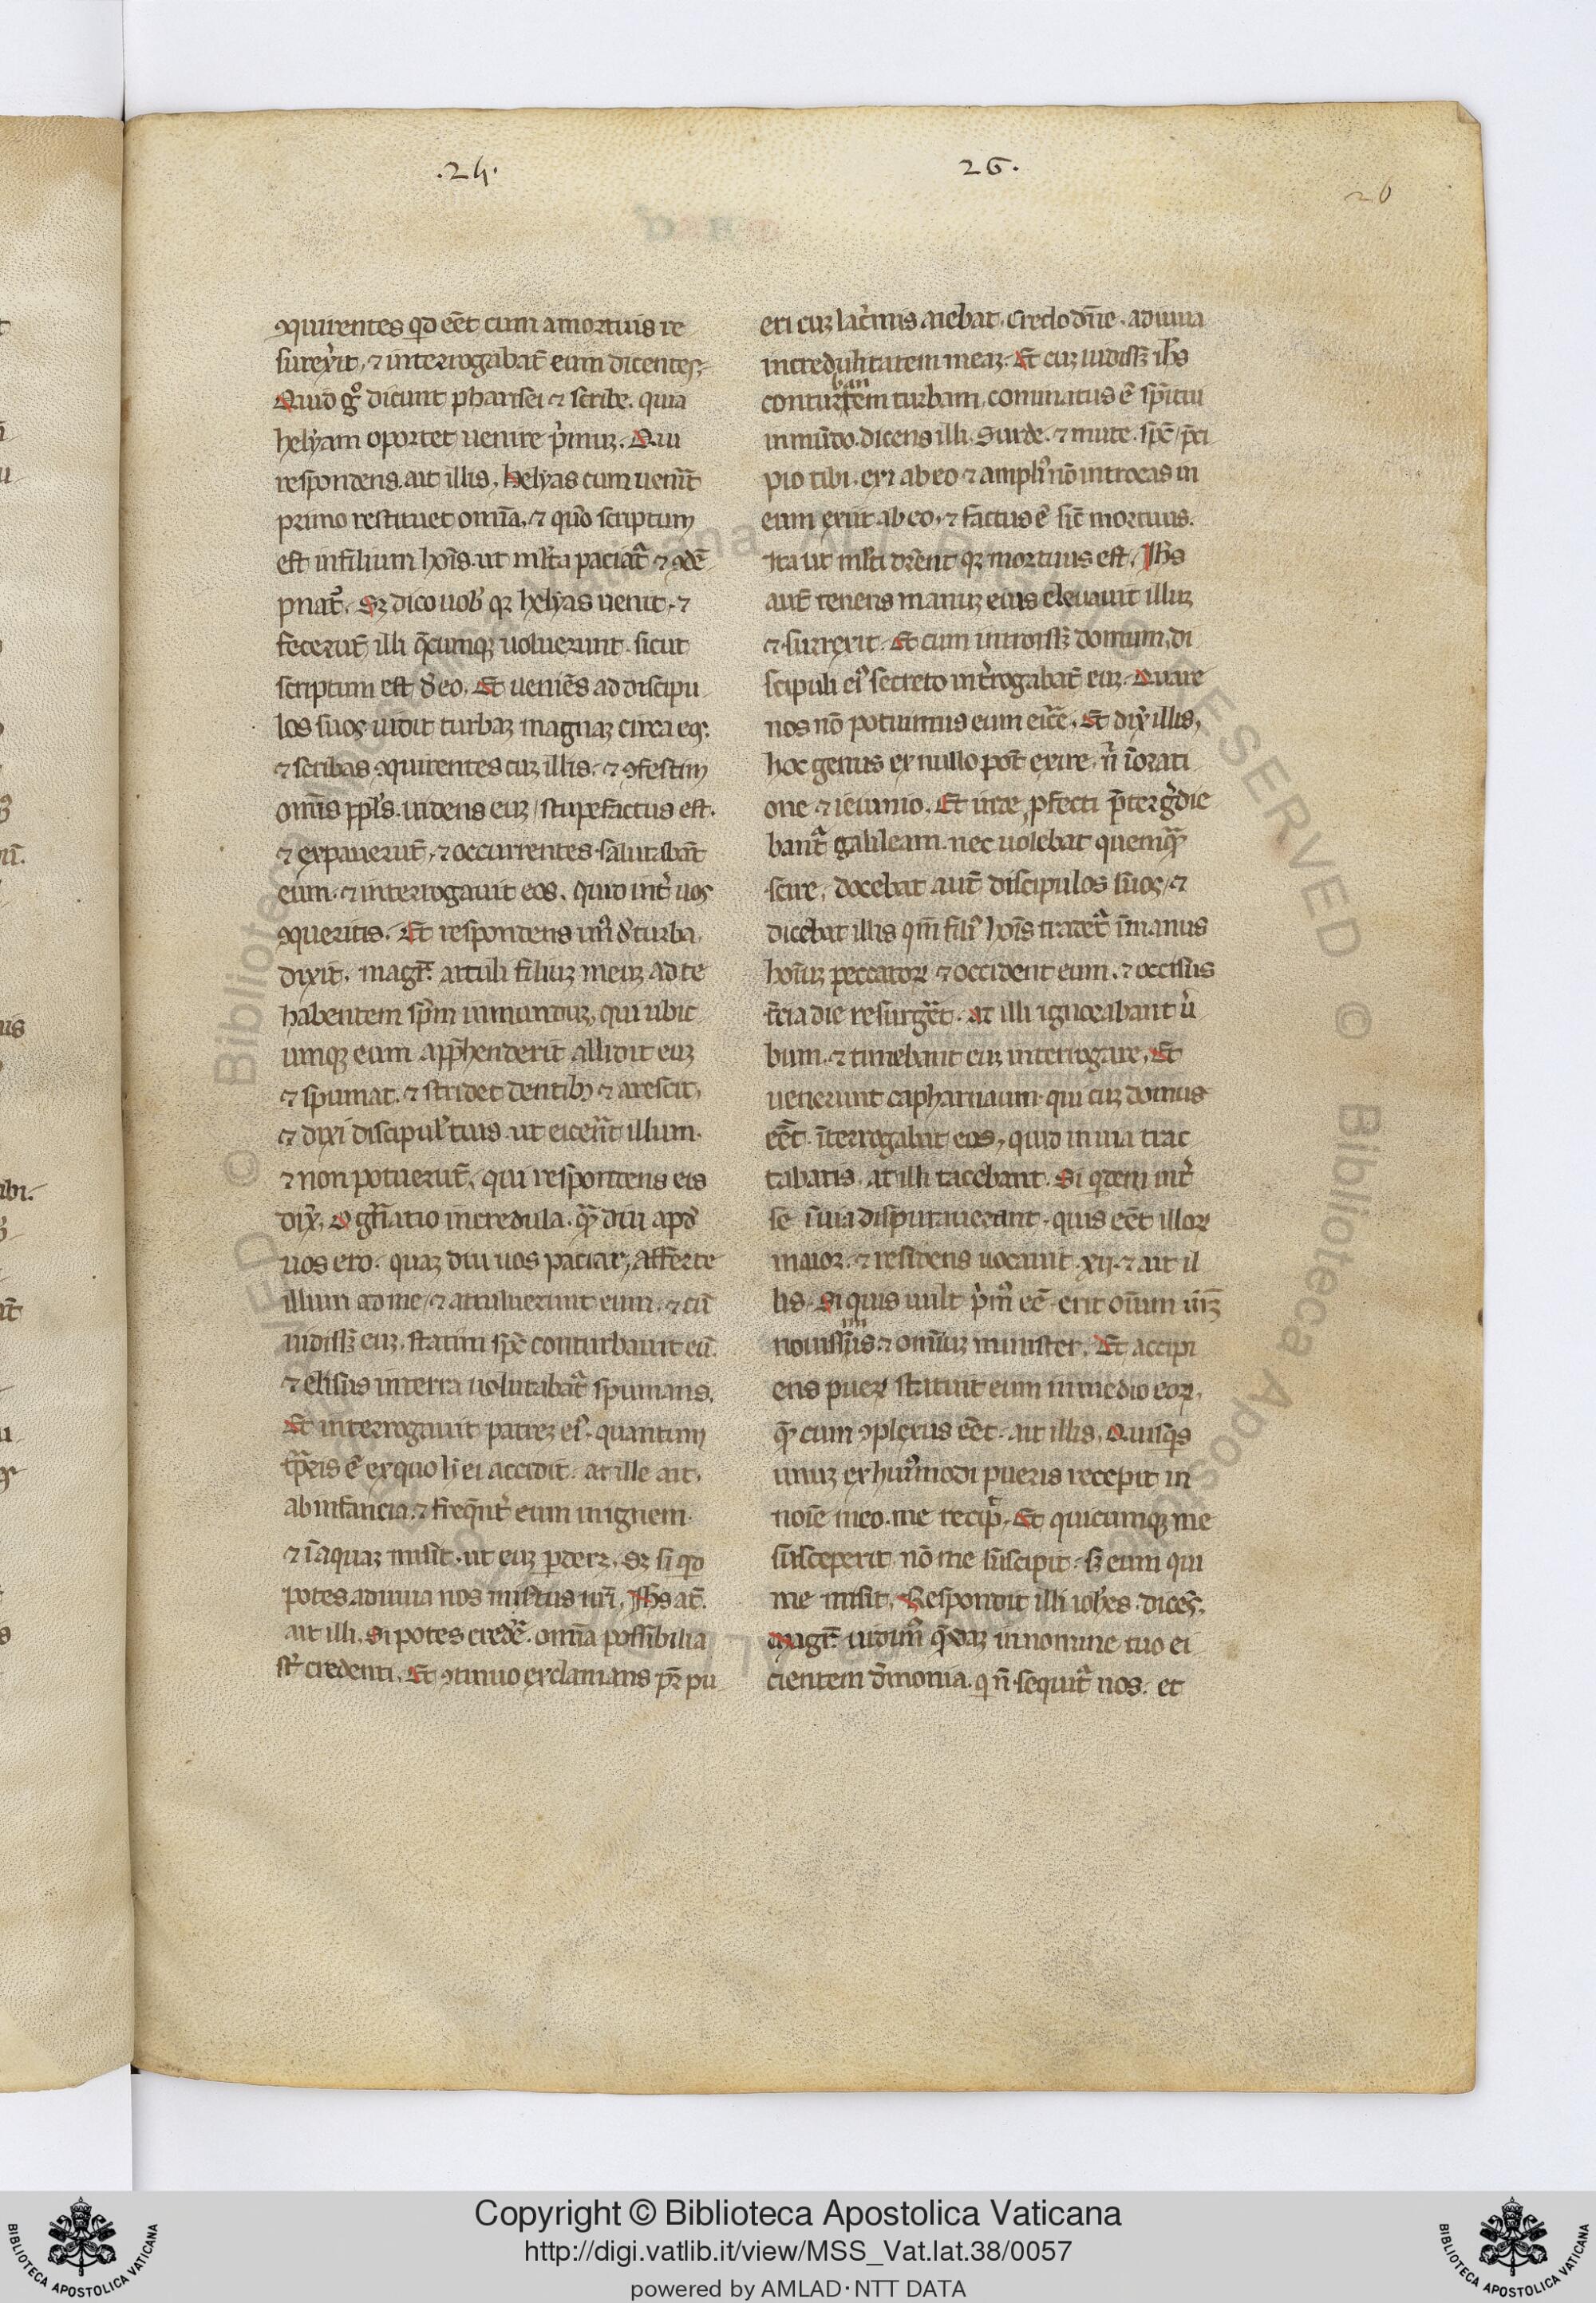 .24.
26.
26
ꝯquirentes qd̄ eēt cum a mortuis re
surex̾it, ⁊ interrogabāt eum dicentes,
Quid gͦ dicunt pharisei ⁊ scribe. quia
helyam oportet uenire p̾imuꝫ. Qui
respondens ait illis. Helyas cum uenīt
primo restituet omīa, ⁊ quō scriptum
est in filium hoīs. ut ml̄ta paciat᷑ ⁊ ꝯdē
pnat᷑. Sꝫ dico uob̾ qꝫ helyas uenit, ⁊
fecerūt illi q̄cumqꝫ uoluerunt. sicut
scriptum est d̾ eo. Et ueniēs ad discipu
los suos uidit turbaꝫ magnaꝫ circa eos.
⁊ scribas ꝯquirentes cuꝫ illis. ⁊ ꝯfestim
omīs ppl̄s. uidens euꝫ / stupefactus est.
⁊ expauerūt, ⁊ occurrentes salutabāt
eum. ⁊ interrogauit eos. quid int̾ uos
ꝯqueritis. Et respondens un̾ d̾ turba.
dixit. magr̄. attuli filiuꝫ meuꝫ ad te
habentem sp̄m inmunduꝫ, qui ubic
umqꝫ eum app̄henderit allidit euꝫ
⁊ spumat. ⁊ stridet dentibꝫ ⁊ arescit,
⁊ dixi discipul̾ tuis. ut eicer̄t illum.
⁊ non potuerūt, qui respondens eis
dix̾. O gn̄atio incredula. qᷓ diu apd̾
uos ero. quaꝫ diu uos paciar, afferte
illum ad me / ⁊ attulerunt eum. ⁊ cū
uidissꝫ euꝫ. statim sp̄c conturbauit eū.
⁊ elisus in terra uolutabat᷑ spumans.
Et interrogauit patreꝫ ei᷒. quantum
tp̄ris ē ex quo h̾ ei accidit. at ille ait.
ab infancia. ⁊ freqn̄t̾ eum in ignem
⁊ ī aquaꝫ misit. ut euꝫ ꝑderꝫ. Sꝫ si qd̄
potes adiuua nos misertus nr̄i. Ih̄s āt.
ait illi. Si potes creder̄. omīa possibilia
st̄ credenti. Et ꝯtinuo exclamans pr̄ pu
eri cuꝫ lac̾imis aiebat. credo dn̄e. adiuua
incredulitatem meaꝫ. Et cuꝫ uidissꝫ ih̄s
ban
conturtem turbam, cominatus ē sp̄itui
inmūdo. dicens illi. Surde. ⁊ mute. sp̄c / p̄ci
pio tibi. exi ab eo ⁊ ampli᷒ nō introeas in
eum exiit ab eo. ⁊ factus ē sic̄ mortuus.
Ita ut ml̄ti dr̄ent qꝫ mortuus est. Ih̄s
aut̄ tenens manuꝫ eius eleuauit illuꝫ
⁊ surrexit. Et cum introissꝫ domum, di
scipuli ei᷒ secreto int̾rogabāt euꝫ. Quare
nos nō potuimus eum eic̾e. Et dix̾ illis,
hoc genus ex nullo pōt exire. n̾ ī orati
one ⁊ ieiunio. Et inde ꝓfecti p̄terg̾die
bant᷑ galileam. nec uolebat quemqᷓ
scire, docebat aut̄ discipulos suos / ⁊
dicebat illis qm̄ fili᷒ hoīs tradet᷑ ī manus
hoīuꝫ peccatoꝝ ⁊ occident eum. ⁊ occisus
t̄cia die resurgēt. At illi ignorabant u̾
bum. ⁊ timebant euꝫ interrogare. Et
uenerunt capharnaum. qui cuꝫ domus
eēt. īterrogabat eos, quid in uia trac
tabatis. at illi tacebant. Si qdem int̾
se ī uia disputauerant. quis eēt illoꝝ
maior. ⁊ residens uocauit .xij. ⁊ ait il
lis. Si quis uult p̾m᷒ eē. erit oīum
im
nouissus ⁊ omīuꝫ minister. Et accipi
ens pueꝝ statuit eum in medio eoꝝ,
qᷓ cum ꝯplexus eēt. ait illis. Quisqs
unuꝫ ex hui᷒modi pueris recepit in
noīe meo. me recip̄. Et quicumqꝫ me
susceperit nō me suscipit. sꝫ eum qui
me misit. Respondit illi ioh̄es. dicēs.
Magr̄. uidim᷒ qᷓdaꝫ in nomine tuo ei
cientem d̄monia. q n̄ sequit᷑ nos. et
Copyright © Biblioteca Apostolica Vaticana
http://digi.vatlib.it/view/MSS_Vat.lat.38/0057
powered by AMLAD · NTT DATA
BIBLIOTECA APOSTOLICA VATICANA
BIBLIOTECA APOSTOLICA VATICANA